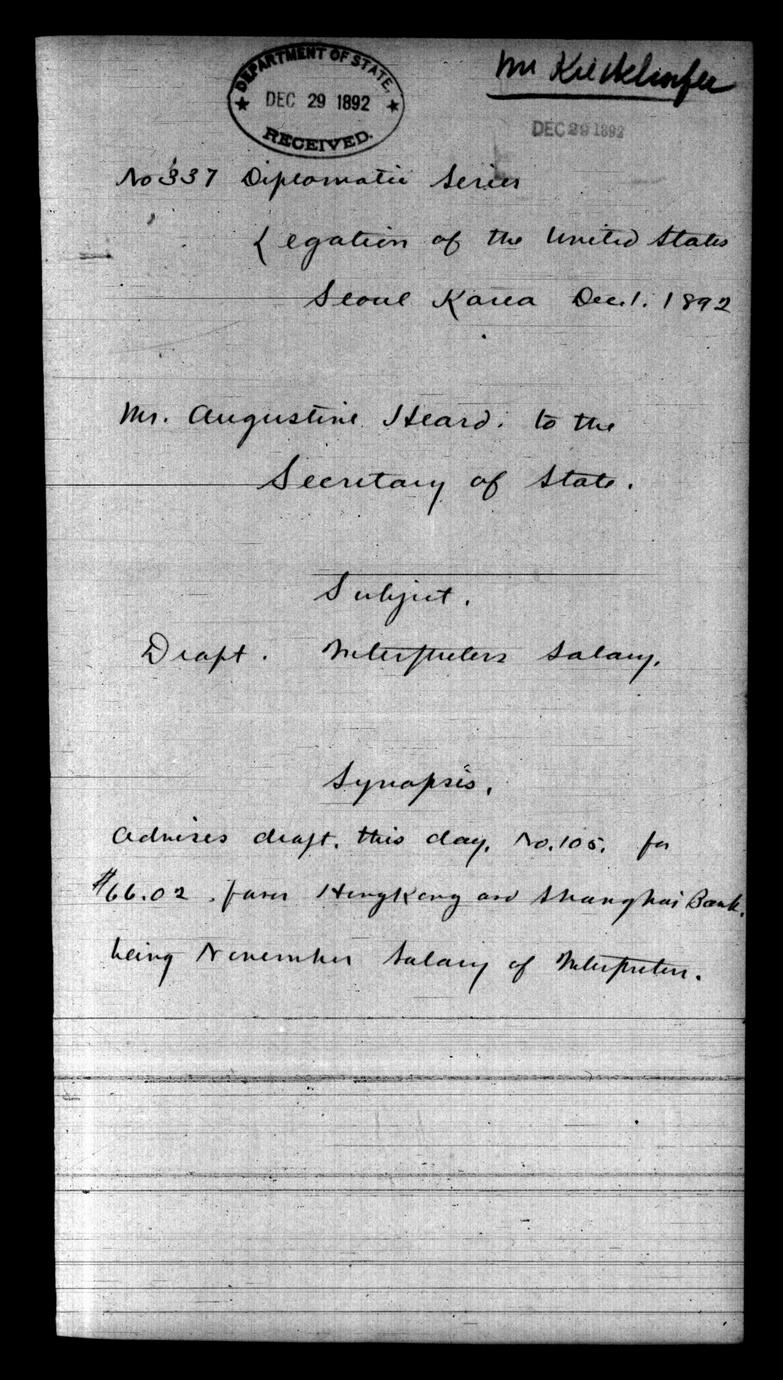 DEPARTMENT OF STATE,
DEC 29 1892
RECEIVED.
Mr
DEC 29 1892
No 337 Diplomatic Series
Legation of the United States
Seoul Korea Dec. 1. 1892
Mr. Augustine Heard. to the
Secretary of State.
Subject.
Draft. Interpreters Salary.
Synopsis.
Advises draft. this day. No. 105. for
$66.02. favor HongKong and Shanghai Bank.
being November Salary of Interpreters.